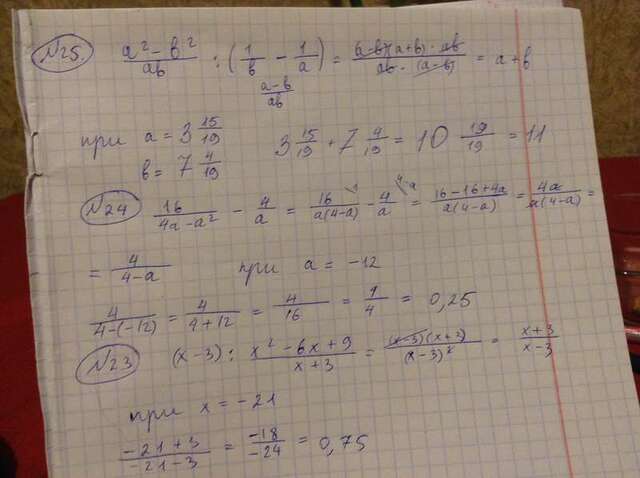 №25. (a² - b²)/(ab) : (1/b - 1/a) = ((a-b)(a+b) · ab)/(ab · (a-b)) = a+b
(a-b)/(ab)
при a = 3 15/19   3 15/19 + 7 4/19 = 10 19/19 = 11
b = 7 4/19
№24 16/(4a-a²) - 4/a = 16/(a(4-a)) - 4/a = (16-16+4a)/(a(4-a)) = 4a/(a(4-a)) =
= 4/(4-a)   при a = -12
4/(4-(-12)) = 4/(4+12) = 4/16 = 1/4 = 0,25
№23 (x-3) : (x² - 6x + 9)/(x+3) = ((x-3)(x+3))/(x-3)² = (x+3)/(x-3)
при x = -21
(-21+3)/(-21-3) = (-18)/(-24) = 0,75